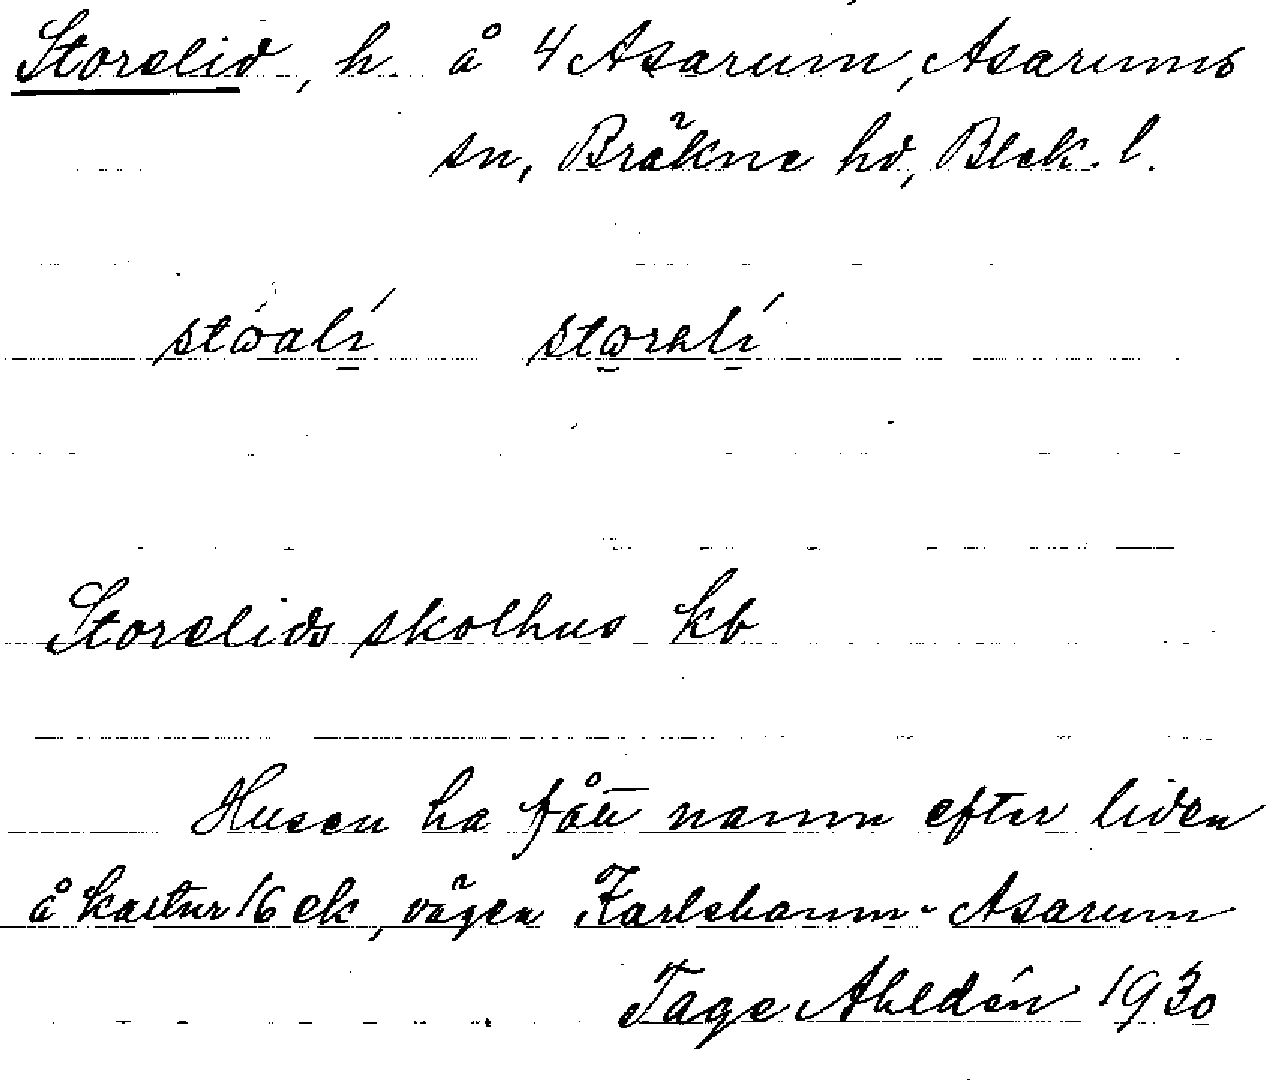 Storelid, h. å 4 Asarum, Asarums
sn, Bräkne hd, Blek. l.
Storelids skolhus kb
Husen ha fått namn efter liden
å kartnr 16 ek, vägen Karlshamn - Asarum
Tage Ahldén 1930